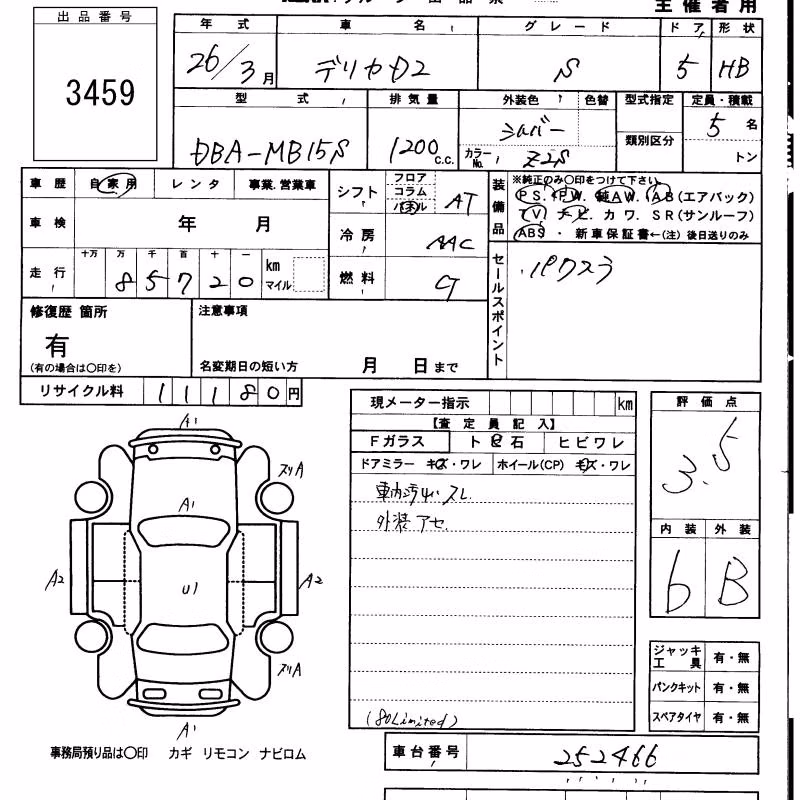 主催者用
出品番号
3459
年式 車名 グレード ドア 形状
26/3月 デリカD2 S 5 HB
型式 排気量 外装色 色替 型式指定 定員・積載
DBA-MB15S 1200c.c. シルバー 類別区分 5名
カラーNo. Z2S トン
車歴 自家用 レンタ 事業.営業車
シフト フロア コラム パネル AT
装備品 ※純正のみ〇印をつけて下さい。
PS. PW. 純AW. AB(エアバック)
TV ナビ. カワ. SR(サンルーフ)
ABS ・新車保証書←(注)後日送りのみ
車検 年 月
冷房 AAC
走行 十万 万 千 百 十 一
85720 km マイル
燃料 G
セールスポイント
・パワスラ
修復歴 箇所
有
(有の場合は〇印を)
注意事項
名変期日の短い方 月 日まで
リサイクル料 11180円
現メーター指示 km
【査定員記入】
Fガラス ト ビ 石 ヒビワレ
ドアミラー キズ・ワレ ホイール(CP) キズ・ワレ
車内汚れ・スレ
外装アセ
(80Limited)
評価点
3.5
内装 外装
6 B
A1
ズリA
A1
A2 U1 A2
ズリA
A1
ジャッキ工具 有・無
パンクキット 有・無
スペアタイヤ 有・無
事務局預り品は〇印 カギ リモコン ナビロム
車台番号 252466